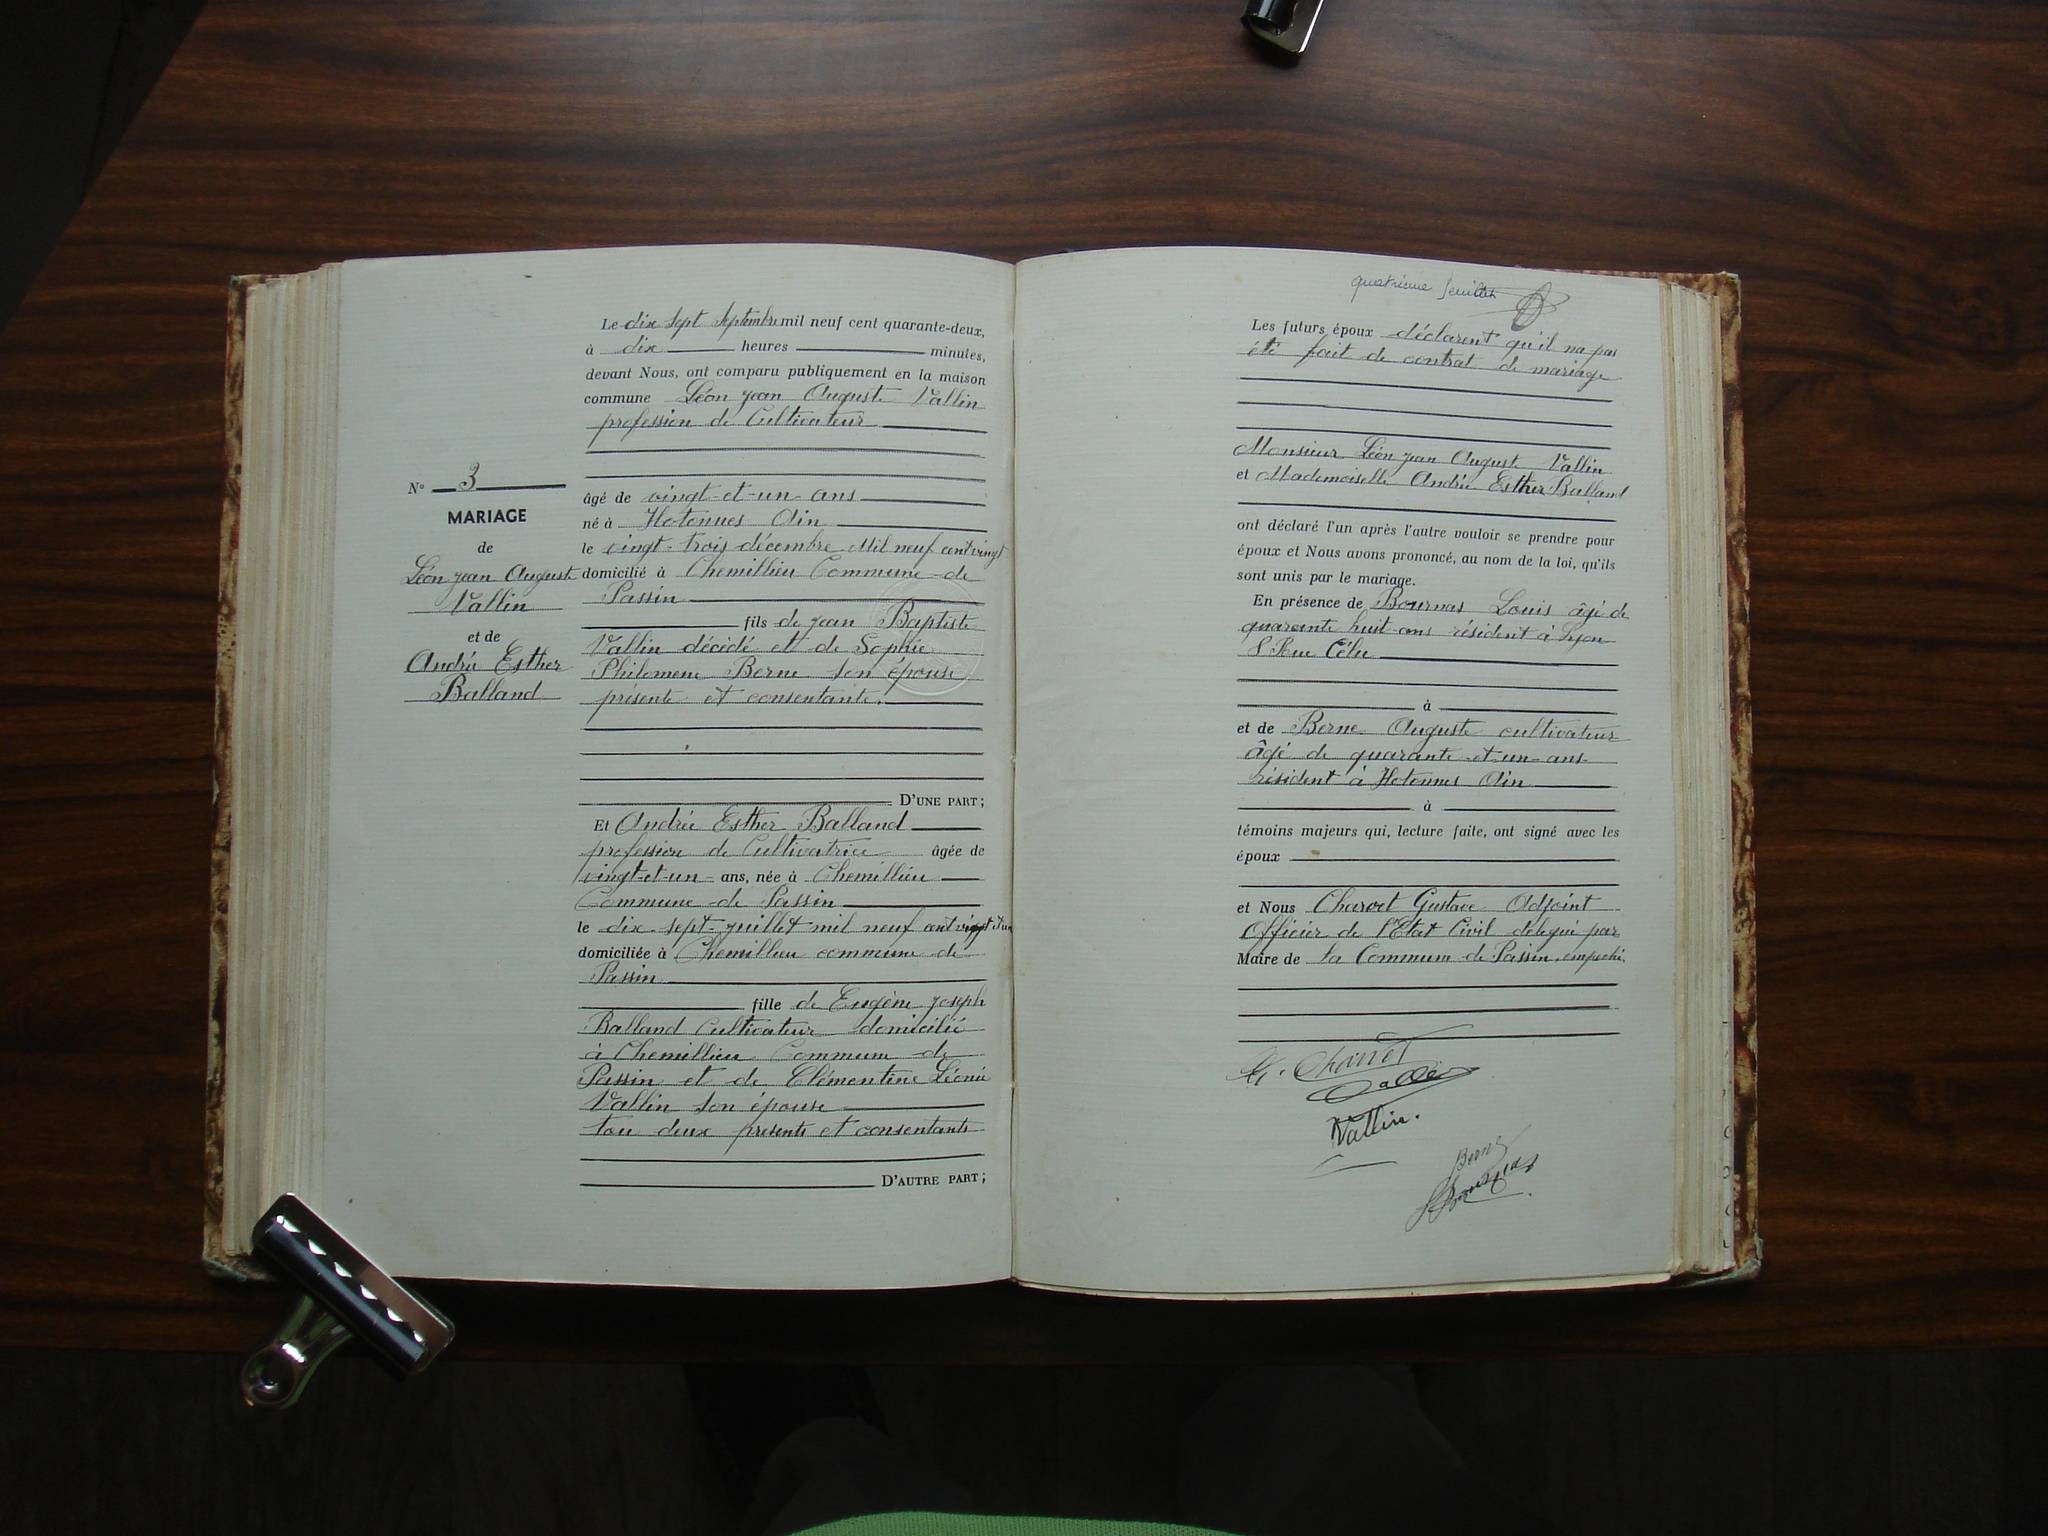 Le dix sept Septembre mil neuf cent quarante-deux,
à dix heures minutes,
devant Nous, ont comparu publiquement en la maison
commune Léon Jean Auguste Vallin
profession de Cultivateur
N° 3
MARIAGE
de
Léon Jean Auguste
Vallin
et de
Andrée Esther
Balland
âgé de vingt-et-un ans
né à Hotonnes Ain
le vingt-trois décembre Mil neuf cent vingt
domicilié à Chemillieu Commune de
Passin
fils de Jean Baptiste
Vallin décédé et de Sophie
Philomene Berne son épouse
présente et consentante.
D'UNE PART ;
Et Andrée Esther Balland
profession de Cultivatrice âgée de
vingt-et-un ans, née à Chemillieu
Commune de Passin
le dix-sept juillet mil neuf cent vingt et un
domiciliée à Chemillieu commune de
Passin
fille de Eugène Joseph
Balland Cultivateur domicilié
à Chemillieu Commune de
Passin et de Clémentine Léonie
Vallin son épouse
tou deux présents et consentants
D'AUTRE PART ;
quatrième feuillet
Les futurs époux déclarent qu'il na pas
été fait de contrat de mariage
Monsieur Léon Jean Auguste Vallin
et Mademoiselle Andrée Esther Balland
ont déclaré l'un après l'autre vouloir se prendre pour
époux et Nous avons prononcé, au nom de la loi, qu'ils
sont unis par le mariage.
En présence de Louis âgé de
quarante huit ans résident à Lyon
8 Rue
à
et de Berne Auguste cultivateur
âgé de quarante-et-un-ans
résident à Hotonnes Ain
à
témoins majeurs qui, lecture faite, ont signé avec les
époux
et Nous Charvet Gustave Adjoint
Officier de l'Etat Civil délégué par
Maire de la Commune de Passin, empeché
G. Charvet
Vallin.
Berne